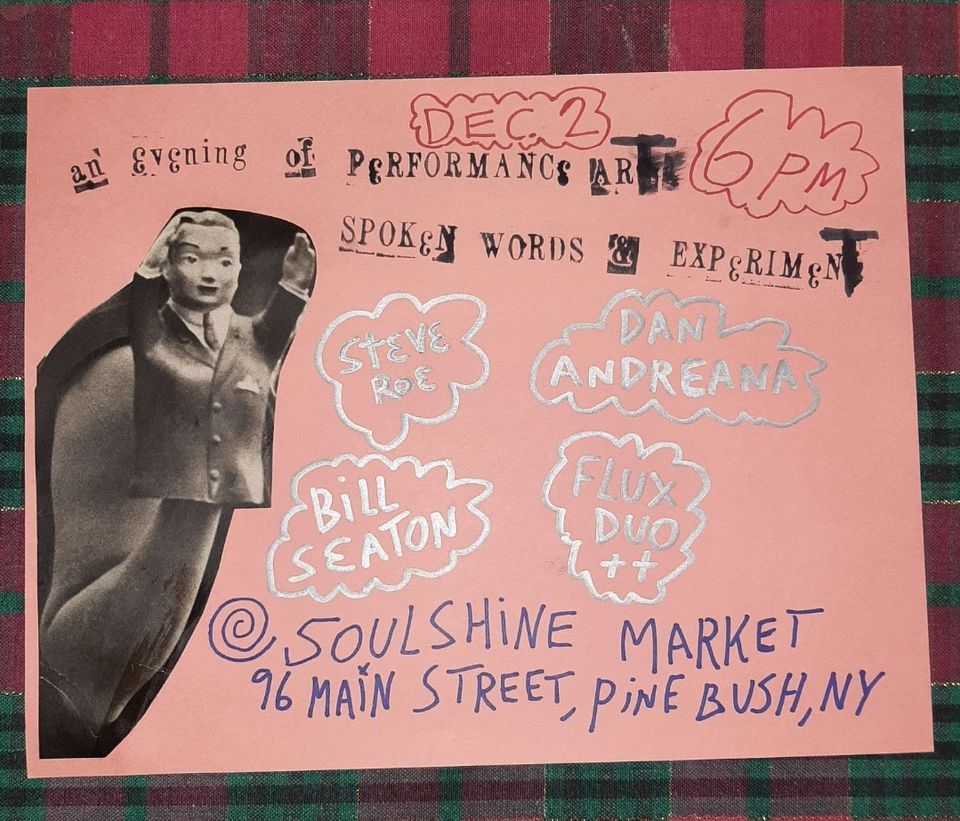 DEC. 2
6 PM
an evening of PERFORMANCE ART
SPOKEN WORDS & EXPERIMENT
STEVE
ROE
DAN
ANDREANA
BiLL
SEATON
FLUX
DUO
++
@ SOULSHiNE MARKET
96 MAiN STREET, PiNE BUSH, NY